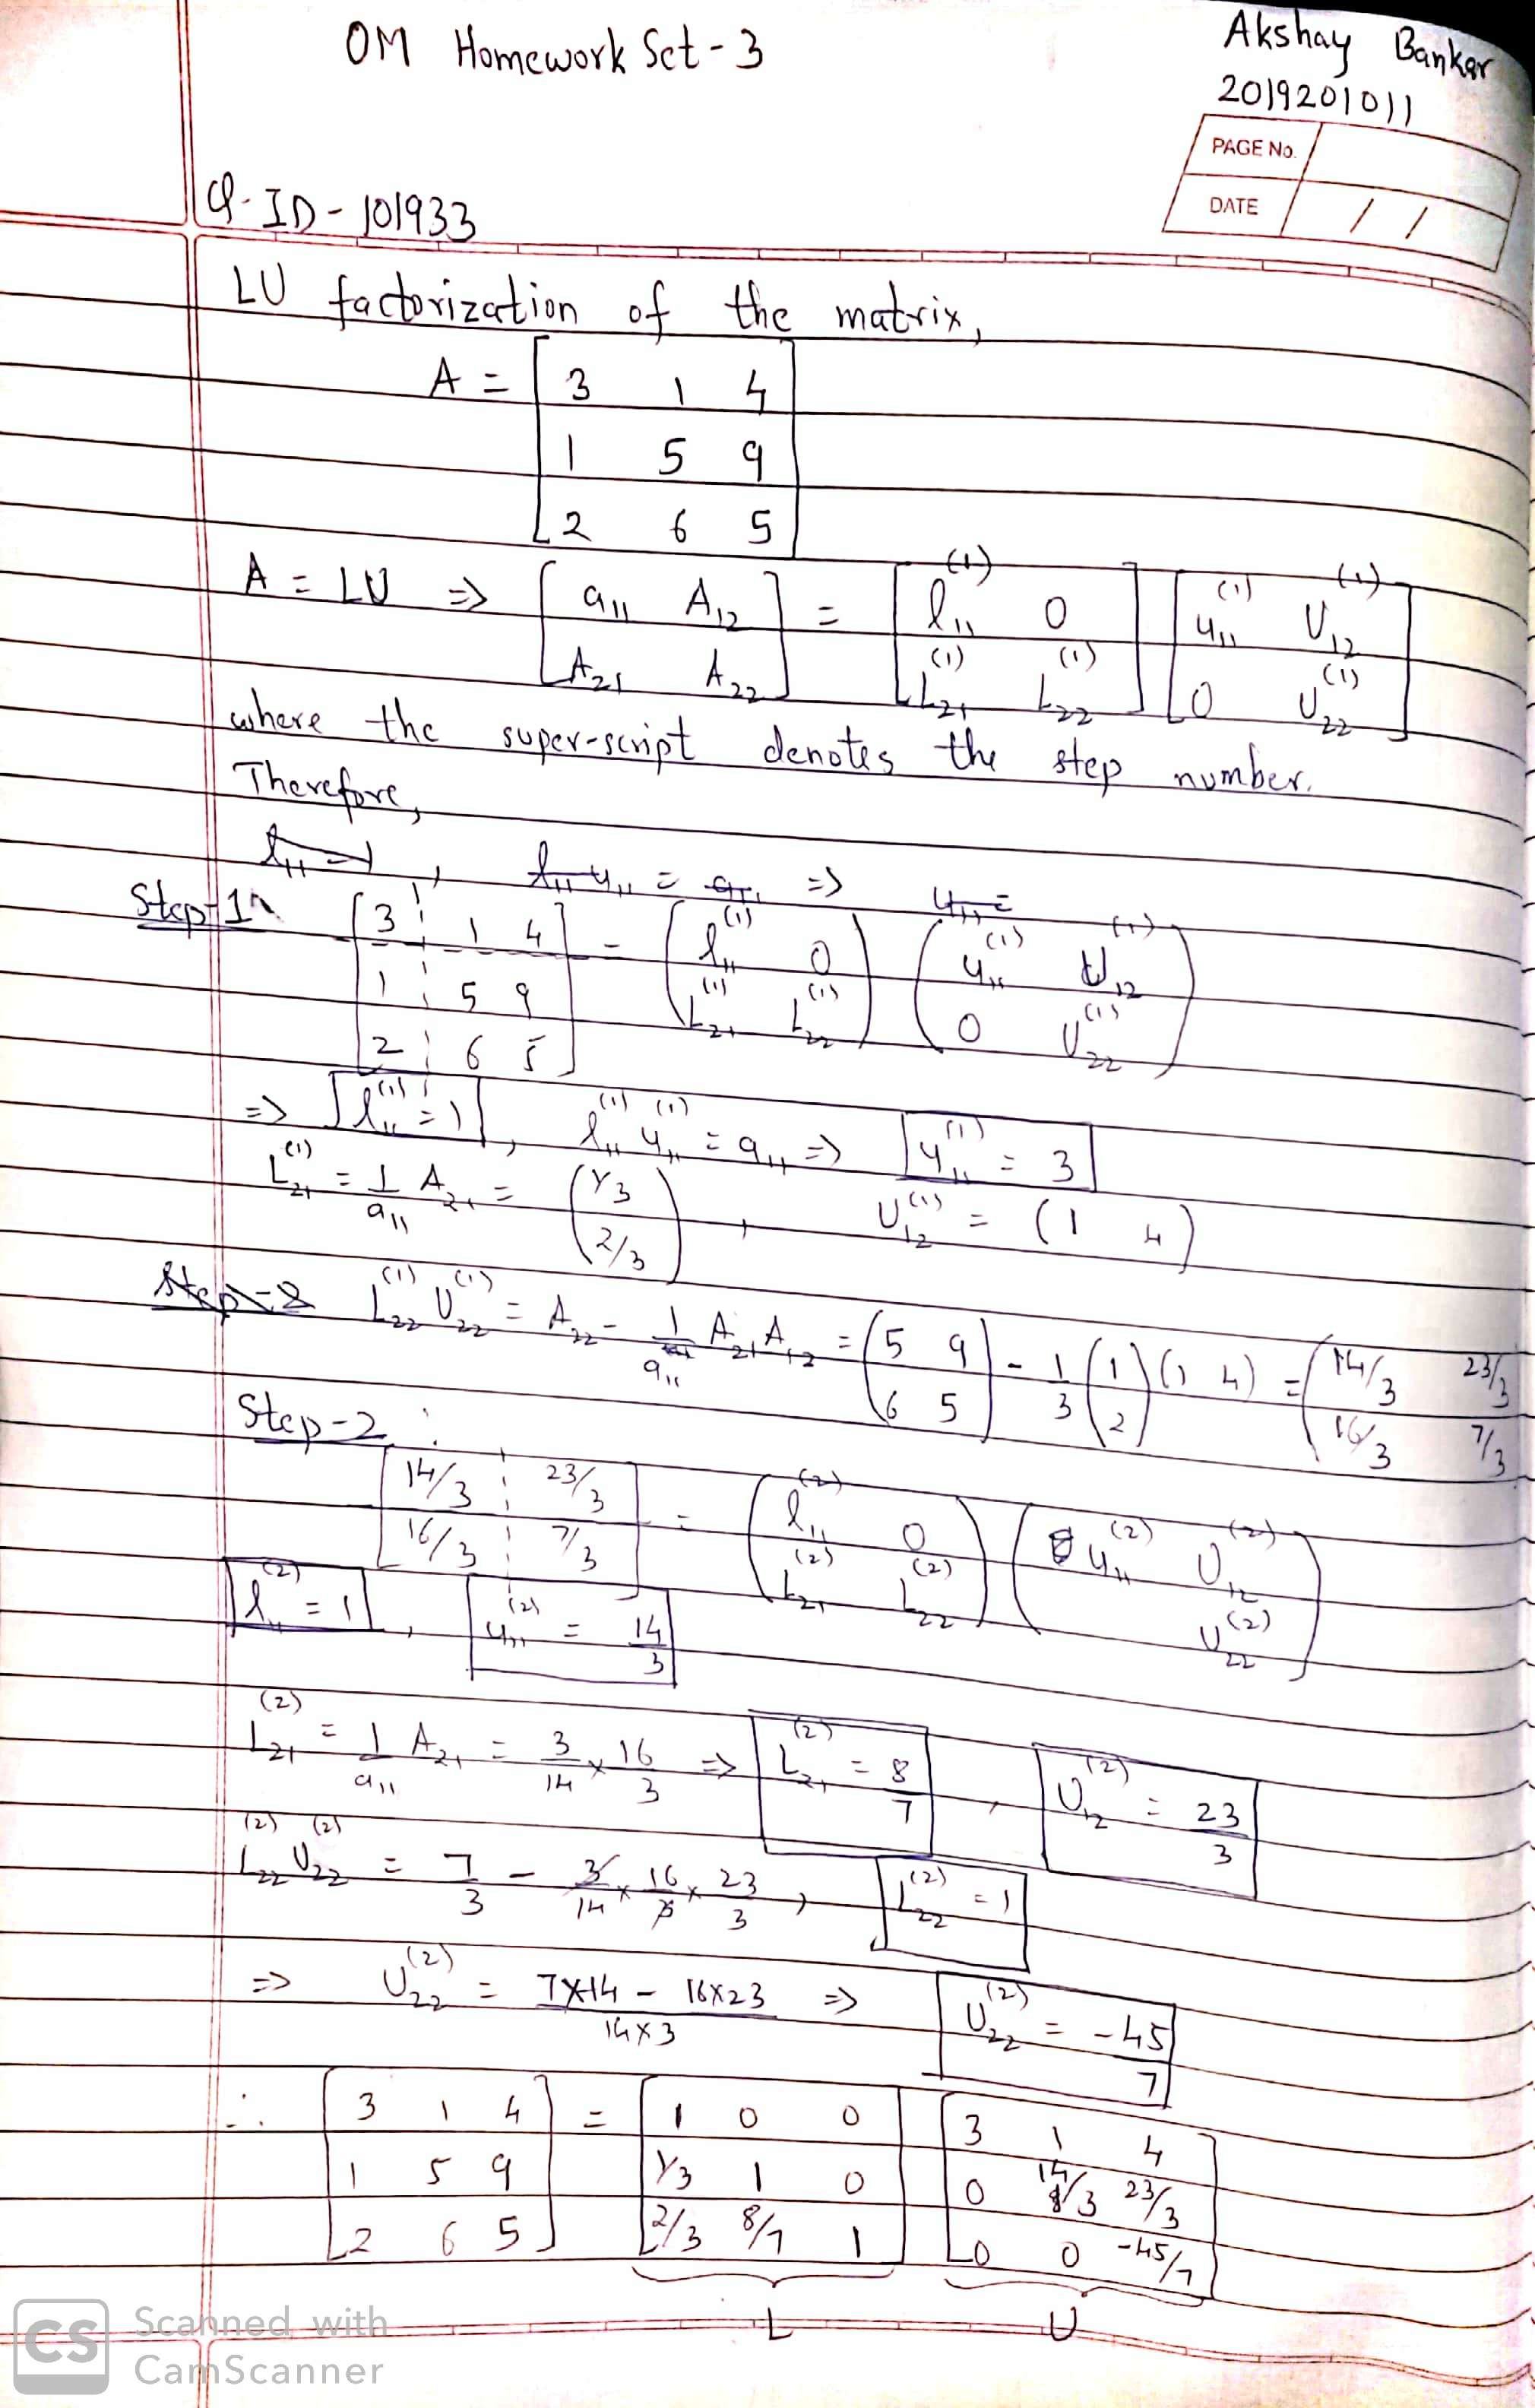 OM Homework Set - 3
Akshay Bankar
2019201011
PAGE No.
DATE / /
Q. ID - 101933
LU factorization of the matrix,
A = [ 3 1 4
1 5 9
2 6 5 ]
A = LU => [ a11 A12 ; A21 A22 ] = [ l11^(1) 0 ; L21^(1) L22^(1) ] [ u11^(1) U12^(1) ; 0 U22^(1) ]
where the super-script denotes the step number.
Therefore,
l11 = 1 , l11 u11 = a11 => u11 =
Step-1 [ 3 1 4 ; 1 5 9 ; 2 6 5 ] = ( l11^(1) 0 ; L21^(1) L22^(1) ) ( u11^(1) U12^(1) ; 0 U22^(1) )
=> l11^(1) = 1 , l11^(1) u11^(1) = a11 => u11^(1) = 3
L21^(1) = 1/a11 A21 = ( 1/3 ; 2/3 ) , U12^(1) = ( 1 4 )
Step-2 L22^(1) U22^(1) = A22 - 1/a11 A21 A12 = ( 5 9 ; 6 5 ) - 1/3 ( 1 ; 2 ) ( 1 4 ) = ( 14/3 23/3 ; 16/3 7/3
Step-2 :
[ 14/3 23/3 ; 16/3 7/3 ] = ( l11^(2) 0 ; L21^(2) L22^(2) ) ( u11^(2) U12^(2) ; U22^(2) )
l11^(2) = 1 , u11^(2) = 14/3
L21^(2) = 1/a11 A21 = 3/14 x 16/3 => L21^(2) = 8/7 , U12^(2) = 23/3
L22^(2) U22^(2) = 7/3 - 3/14 x 16/3 x 23/3 , L22^(2) = 1
=> U22^(2) = 7x14 - 16x23 / 14x3 => U22^(2) = -45/7
∴ [ 3 1 4 ; 1 5 9 ; 2 6 5 ] = [ 1 0 0 ; 1/3 1 0 ; 2/3 8/7 1 ] [ 3 1 4 ; 0 14/3 23/3 ; 0 0 -45/7 ]
L U
CS Scanned with
CamScanner